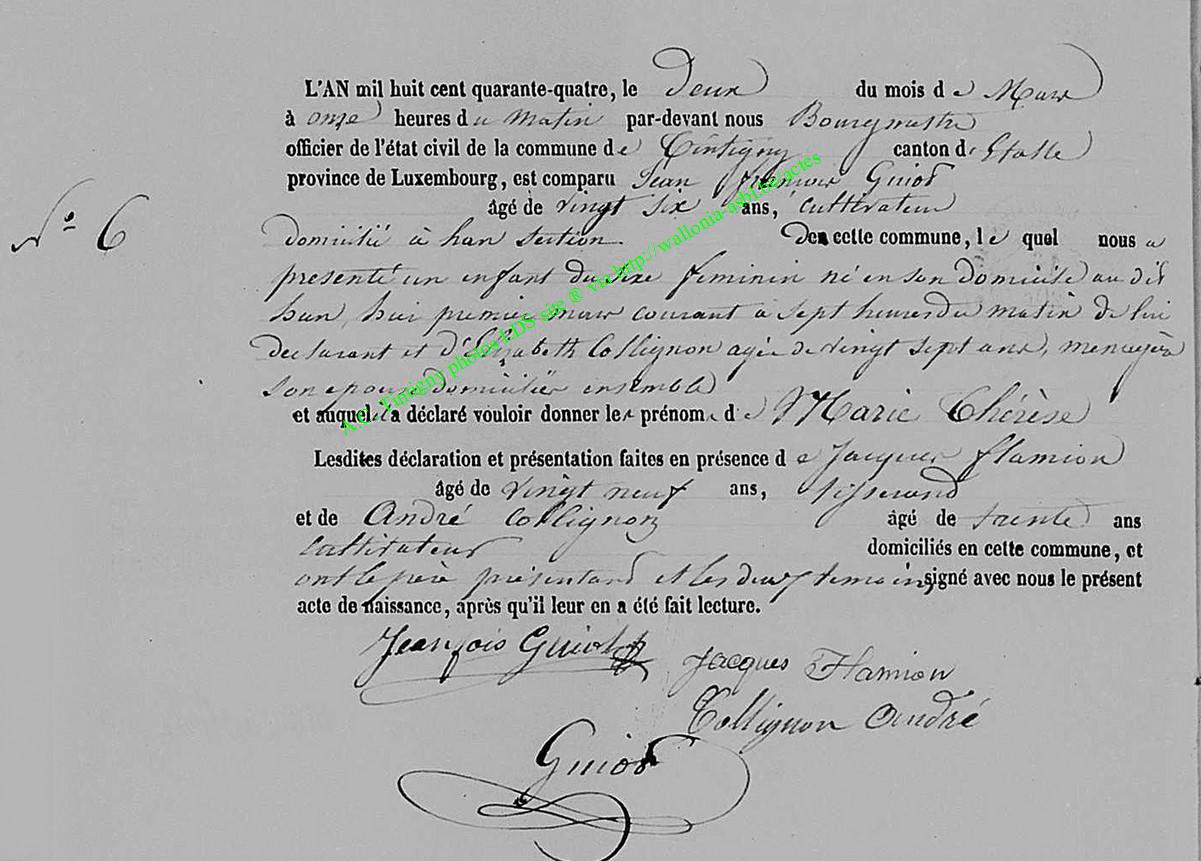 L'AN mil huit cent quarante-quatre, le deux du mois de Mars
à onze heures du Matin par-devant nous Bourgmestre
officier de l'état civil de la commune de Tintigny canton d'Etalle
province de Luxembourg, est comparu Jean françois Guiot
N° 6
âgé de vingt six ans, cultivateur
domicilié à han section De cette commune, lequel nous a
présenté un enfant du sexe feminin né en son domicile au dit
han, hier premier mars courant à sept heures du matin de lui
déclarant et d'Elizabeth Collignon agée de vingt sept ans, menagère
son epouse domiciliés ensemble
et auquel il a déclaré vouloir donner les prénoms de Marie Thérèse
Lesdites déclaration et présentation faites en présence de Jacques flamion
âgé de vingt neuf ans, tisserand
et de André Collignon âgé de trente ans
cultivateur domiciliés en cette commune, et
ont le père présentant et les deux temoins signé avec nous le présent
acte de naissance, après qu'il leur en a été fait lecture.
Jean fois Guiot
Jacques Flamion
Collignon André
Guiot
A.C. Tintigny photos EDS site ® via http://wallonia-asbl.be/actes